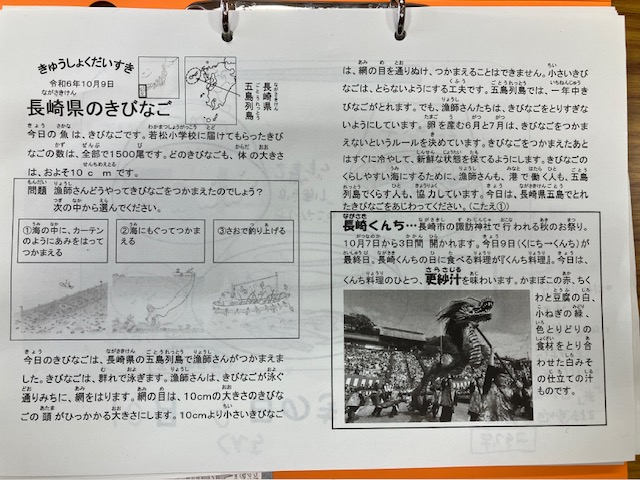 きゅうしょくだいすき
令和6年10月9日
長崎県のきびなご
長崎県
五島列島
今日の魚は、きびなごです。若松小学校に届けてもらったきび
なごの数は、全部で1500尾です。どのきびなごも、体の大きさ
は、およそ10cmです。
問題 漁師さんどうやってきびなごをつかまえたのでしょう?
次の中から選んでください。
①海の中に、カーテン
のようにあみをはって
つかまえる
②海にもぐってつかま
える
③さおで釣り上げる
今日のきびなごは、長崎県の五島列島で漁師さんがつかまえま
した。きびなごは、群れで泳ぎます。漁師さんは、きびなごが泳ぐ
通りみちに、網をはります。網の目は、10cmの大きさのきびな
ごの頭がひっかかる大きさにします。10cmより小さいきびなご
は、網の目を通りぬけ、つかまえることはできません。小さいきび
なごは、とらないようにする工夫です。五島列島では、一年中き
びなごがとれます。でも、漁師さんたちは、きびなごをとりすぎな
いようにしています。卵を産む6月と7月は、きびなごをつかま
えないというルールを決めています。きびなごをつかまえたあと
はすぐに冷やして、新鮮な状態を保てるようにします。きびなごの
くらしやすい海にするために、漁師さんも、港で働く人も、五島
列島でくらす人も、協力しています。今日は、長崎県五島でとれ
たきびなごをあじわってください。(こたえ①)
長崎くんち…長崎市の諏訪神社で行われる秋のお祭り。
10月7日から3日間開かれます。今日9日(くにちーくんち)が
最終日。長崎くんちの日に食べる料理が『くんち料理』。今日は、
くんち料理のひとつ、更紗汁を味わいます。かまぼこの赤、ちく
わと豆腐の白、
小ねぎの緑、
色とりどりの
食材をとり合
わせた白みそ
の仕立ての汁
ものです。